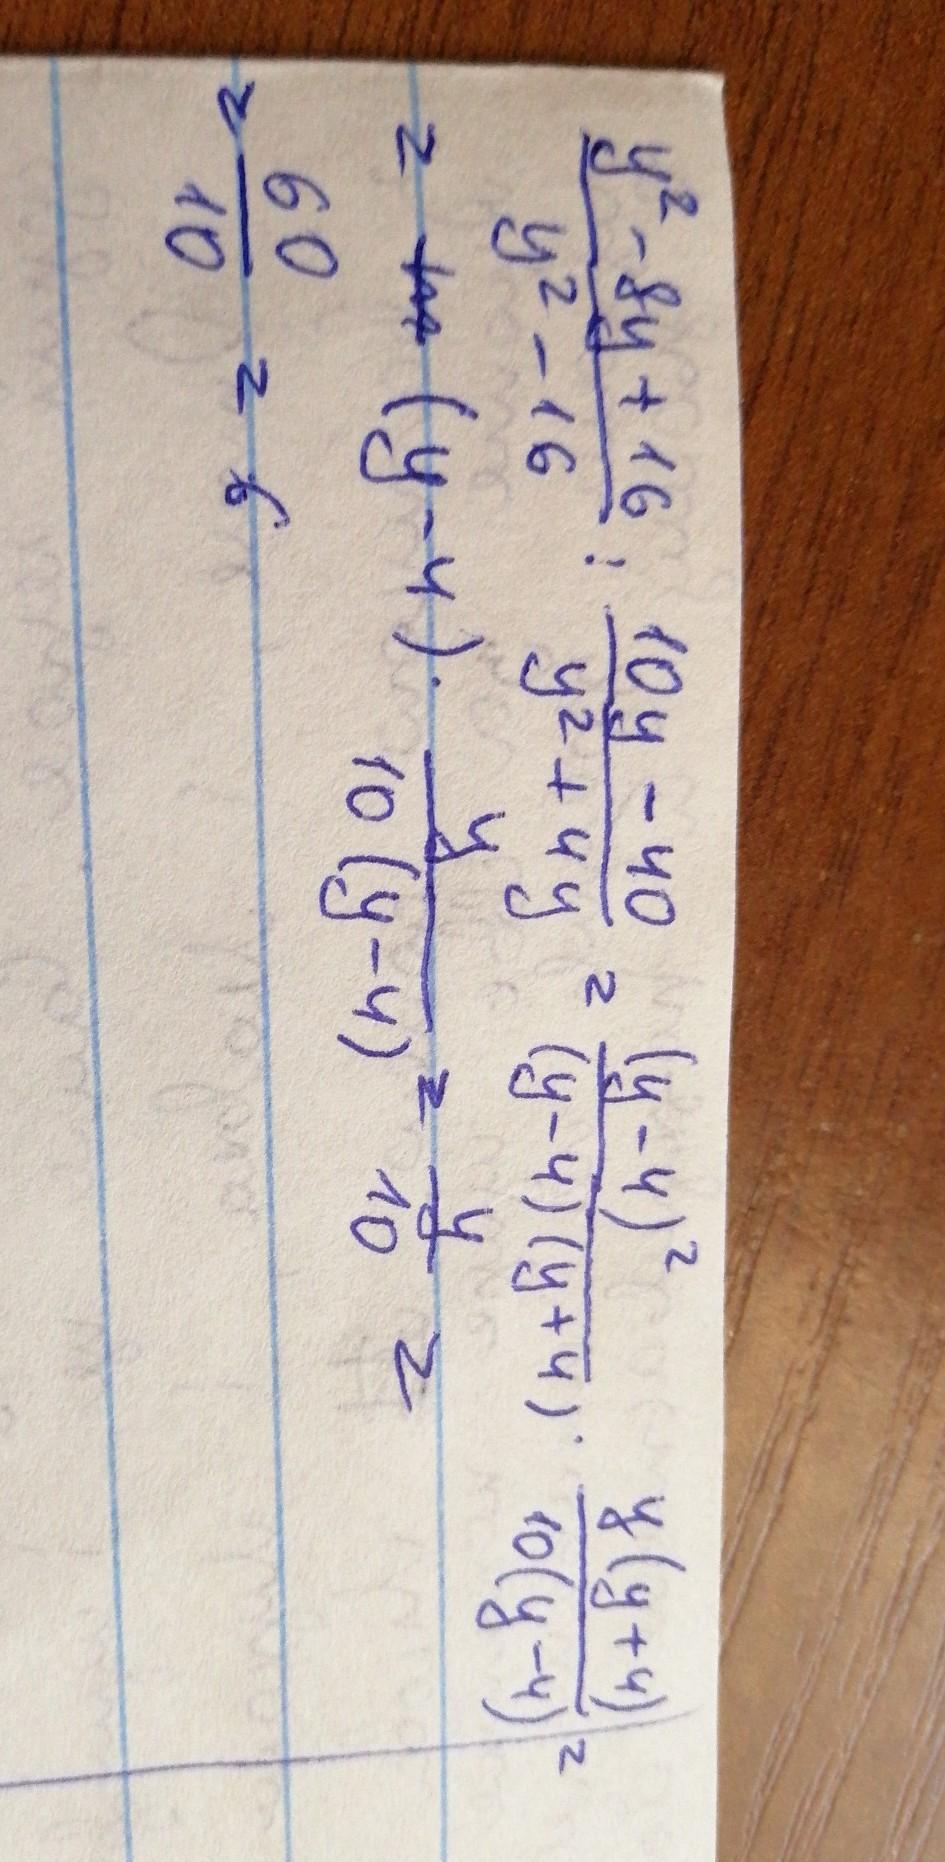 y² - 8y + 16 / y² - 16 : 10y - 40 / y² + 4y = (y - 4)² / (y - 4)(y + 4) · y(y + 4) / 10(y - 4) =
= (y - 4) · y / 10(y - 4) = y / 10 =
= 60 / 10 = 6